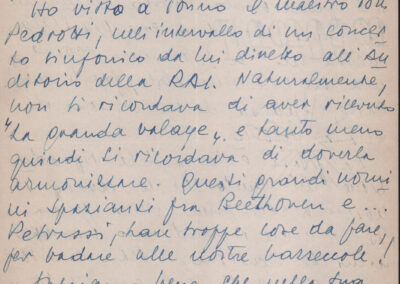 Ho visto a Torino il maestro
Pedrotti, nell'intervallo di un concer
to sinfonico da lui diretto all'Au
ditorio della RAI. Naturalmente,
non si ricordava di aver ricevuto
"La grande valaye" e tanto meno
quindi si ricordava di doverla
armonizzare. Questi grandi uomi
ni spazianti fra Beethoven e...
Petrassi, han troppe cose da fare,
per badare alle nostre bazzecole!
bene, che nella tua